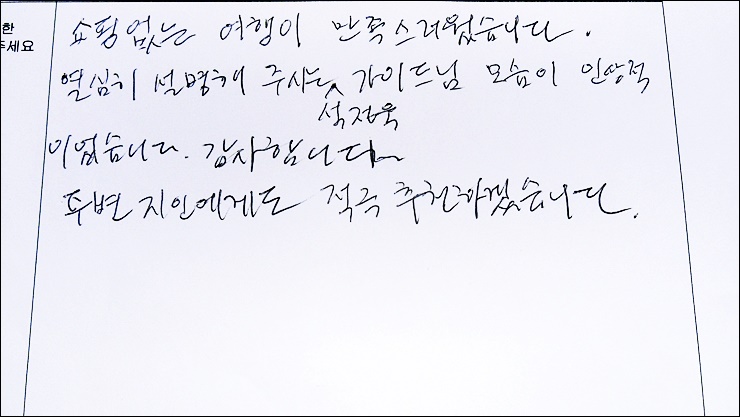 한
주세요
쇼핑없는 여행이 만족스러웠습니다.
열심히 설명해 주시는 가이드님 모습이 인상적
석정욱
이었습니다. 감사합니다~
주변 지인에게도 적극 추천하겠습니다.